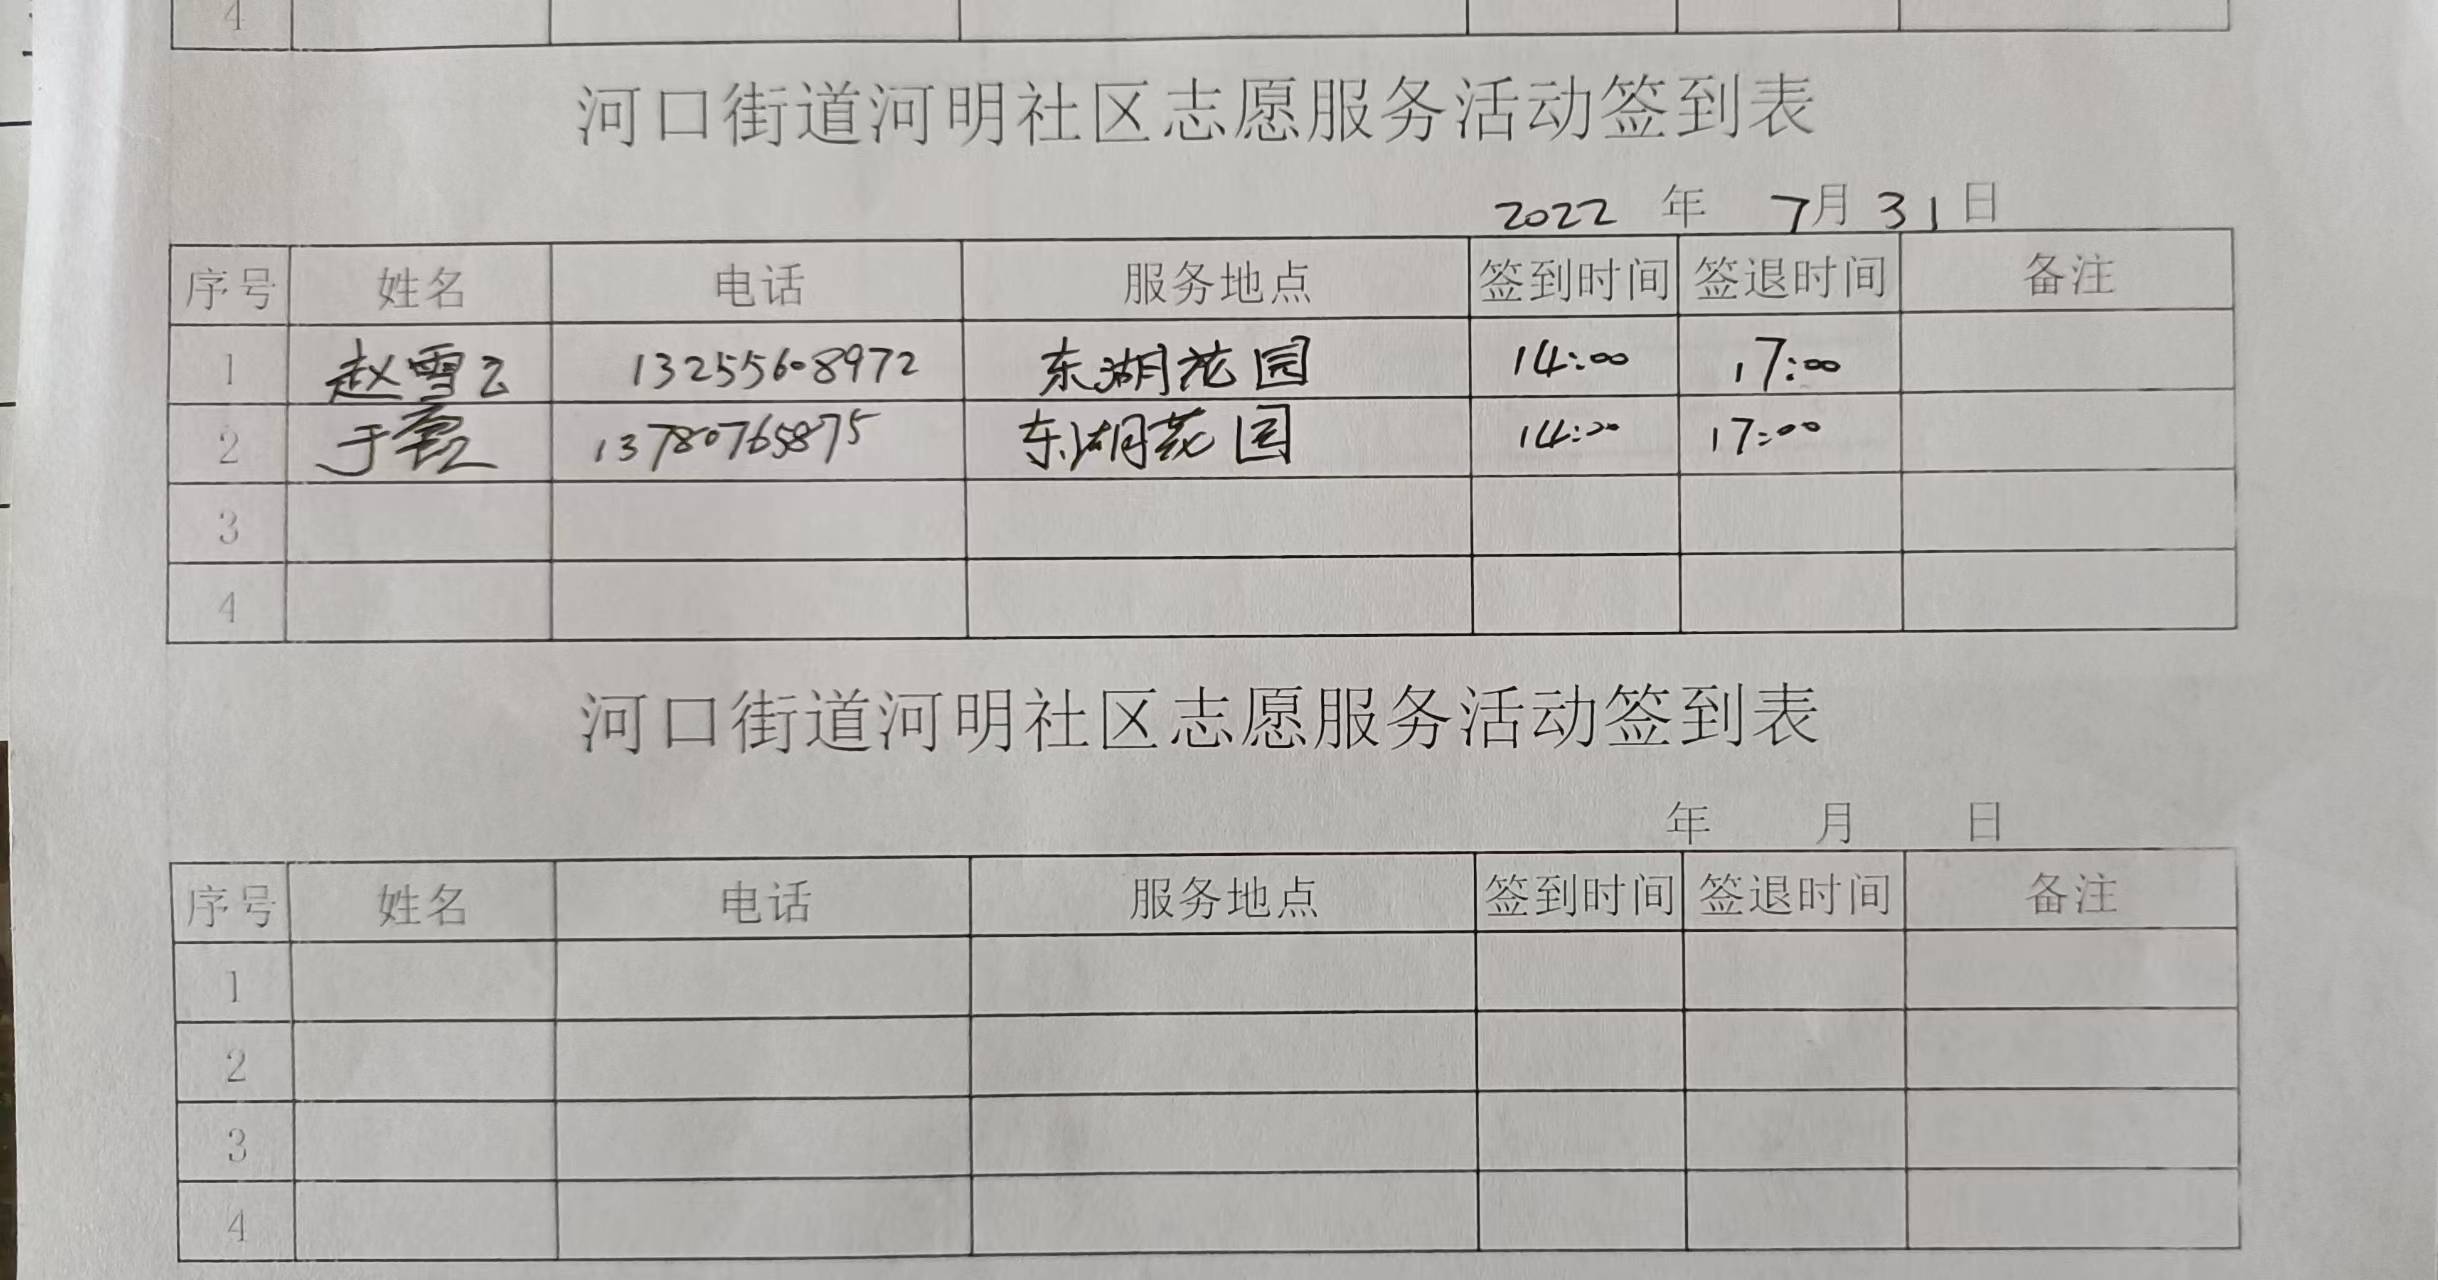 4
河口街道河明社区志愿服务活动签到表
2022 年 7月 31日
序号 姓名 电话 服务地点 签到时间 签退时间 备注
1 赵雪 13255608972 东湖花园 14:00 17:00
2 于 13780765875 东湖花园 14:00 17:00
3
4
河口街道河明社区志愿服务活动签到表
年 月 日
序号 姓名 电话 服务地点 签到时间 签退时间 备注
1
2
3
4